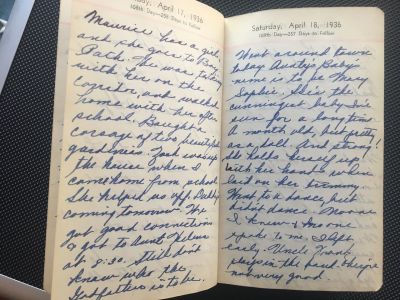 day, April 17, 1936
108th Day—258 Days to Follow
Maurice has a girl
and she goes to Bay
Path. She was talking
with her on the
corridor, and walked
home with her after
school. Bought a
corsage of two beautiful
gardenias. was up
the house when I
came home from school.
She helped us off. Daddy
coming tomorrow. We
got good connections
& got to Aunt Helens
at 8:30. Still don't
know who the
Godfather is to be.
Saturday, April 18, 1936
109th Day—257 Days to Follow
Went around town
today. Aunty's Baby's
name is to be Mary
Sophie. She's the
cunningest baby I've
seen for a long time
A month old, but pretty
as a doll. And strong!
She holds herself up
with her hands when
laid on her tummy.
Went to a dance, but
didn't dance. No one
I knew & no one
spoke to me. I left
early. Uncle Frank
plays in the band. They're
not very good.